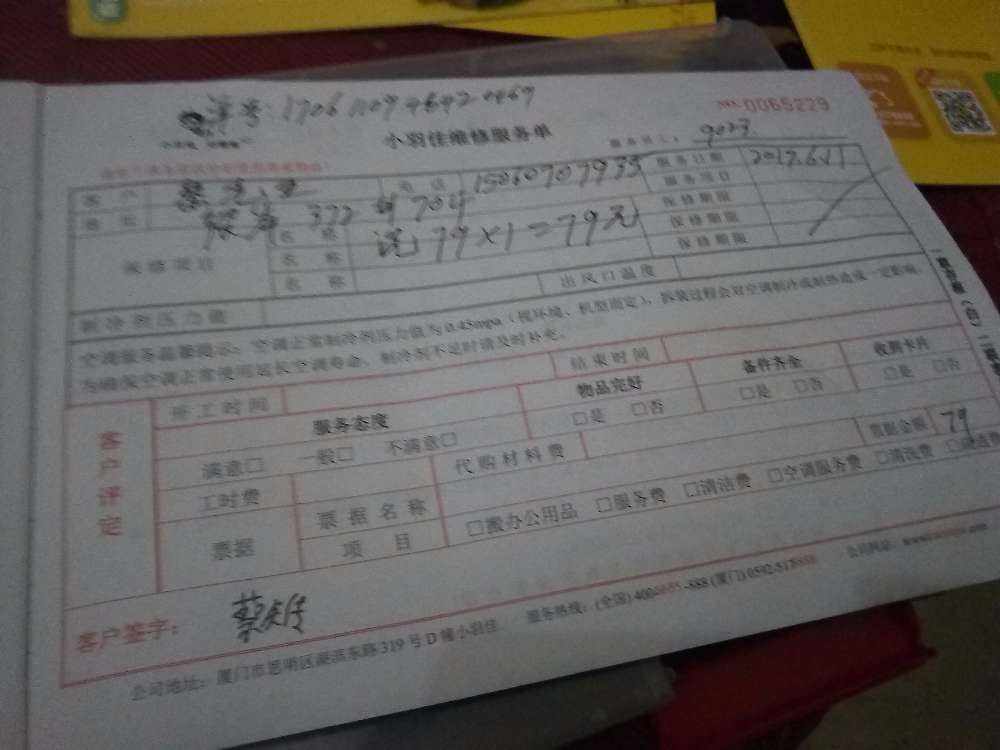 单号: 1706110946420469
No.0065229
小羽佳维修服务单
服务员工: 9023
客户 电话 15060707933 服务日期 2017.6.11
地址 372 704 服务项目
名称 洗 79×1=79元 保修期限
装修项目 名称 保修期限
名称 保修期限
制冷剂压力值 出风口温度
空调服务温馨提示:空调正常制冷剂压力值为0.45mpa(视环境、机型而定),拆装过程会对空调制冷或制热造成一定影响,
为确保空调正常使用延长空调寿命,制冷剂不足时请及时补充。
客户评定
开工时间 结束时间
服务态度 物品完好 备件齐全 收到卡片
满意□ 一般□ 不满意□ □是 □否 □是 □否 □是 □否
工时费 代购材料费 票据金额 79
票据 票据名称 □搬办公用品 □服务费 □清洁费 □空调服务费 □清洗费
项目
客户签字:
公司地址:厦门市思明区湖滨东路319号D幢小羽佳 服务热线:(全国)400 -888(厦门)0592-51 公司网站:www.